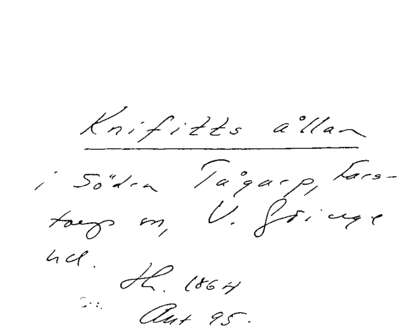 Knifitts ållan
i Södra Tågarp, Fars-
torps sn, V. Göinge
hd.
Th. 1864
Ant 95.